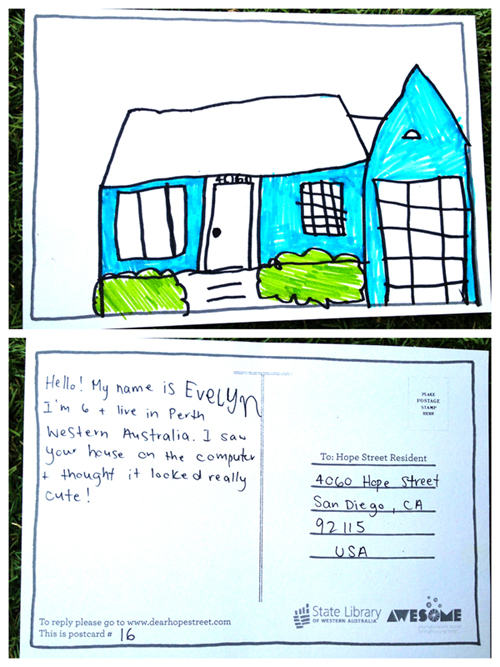 4060
Hello! My name is Evelyn
I'm 6 + live in Perth
Western Australia. I saw
your house on the computer
+ thought it looked really
cute!
To reply please go to www.dearhopestreet.com
This is postcard # 16
PLACE
POSTAGE
STAMP
HERE
To: Hope Street Resident
4060 Hope Street
San Diego, CA
92115
USA
State Library
OF WESTERN AUSTRALIA
AWESOME